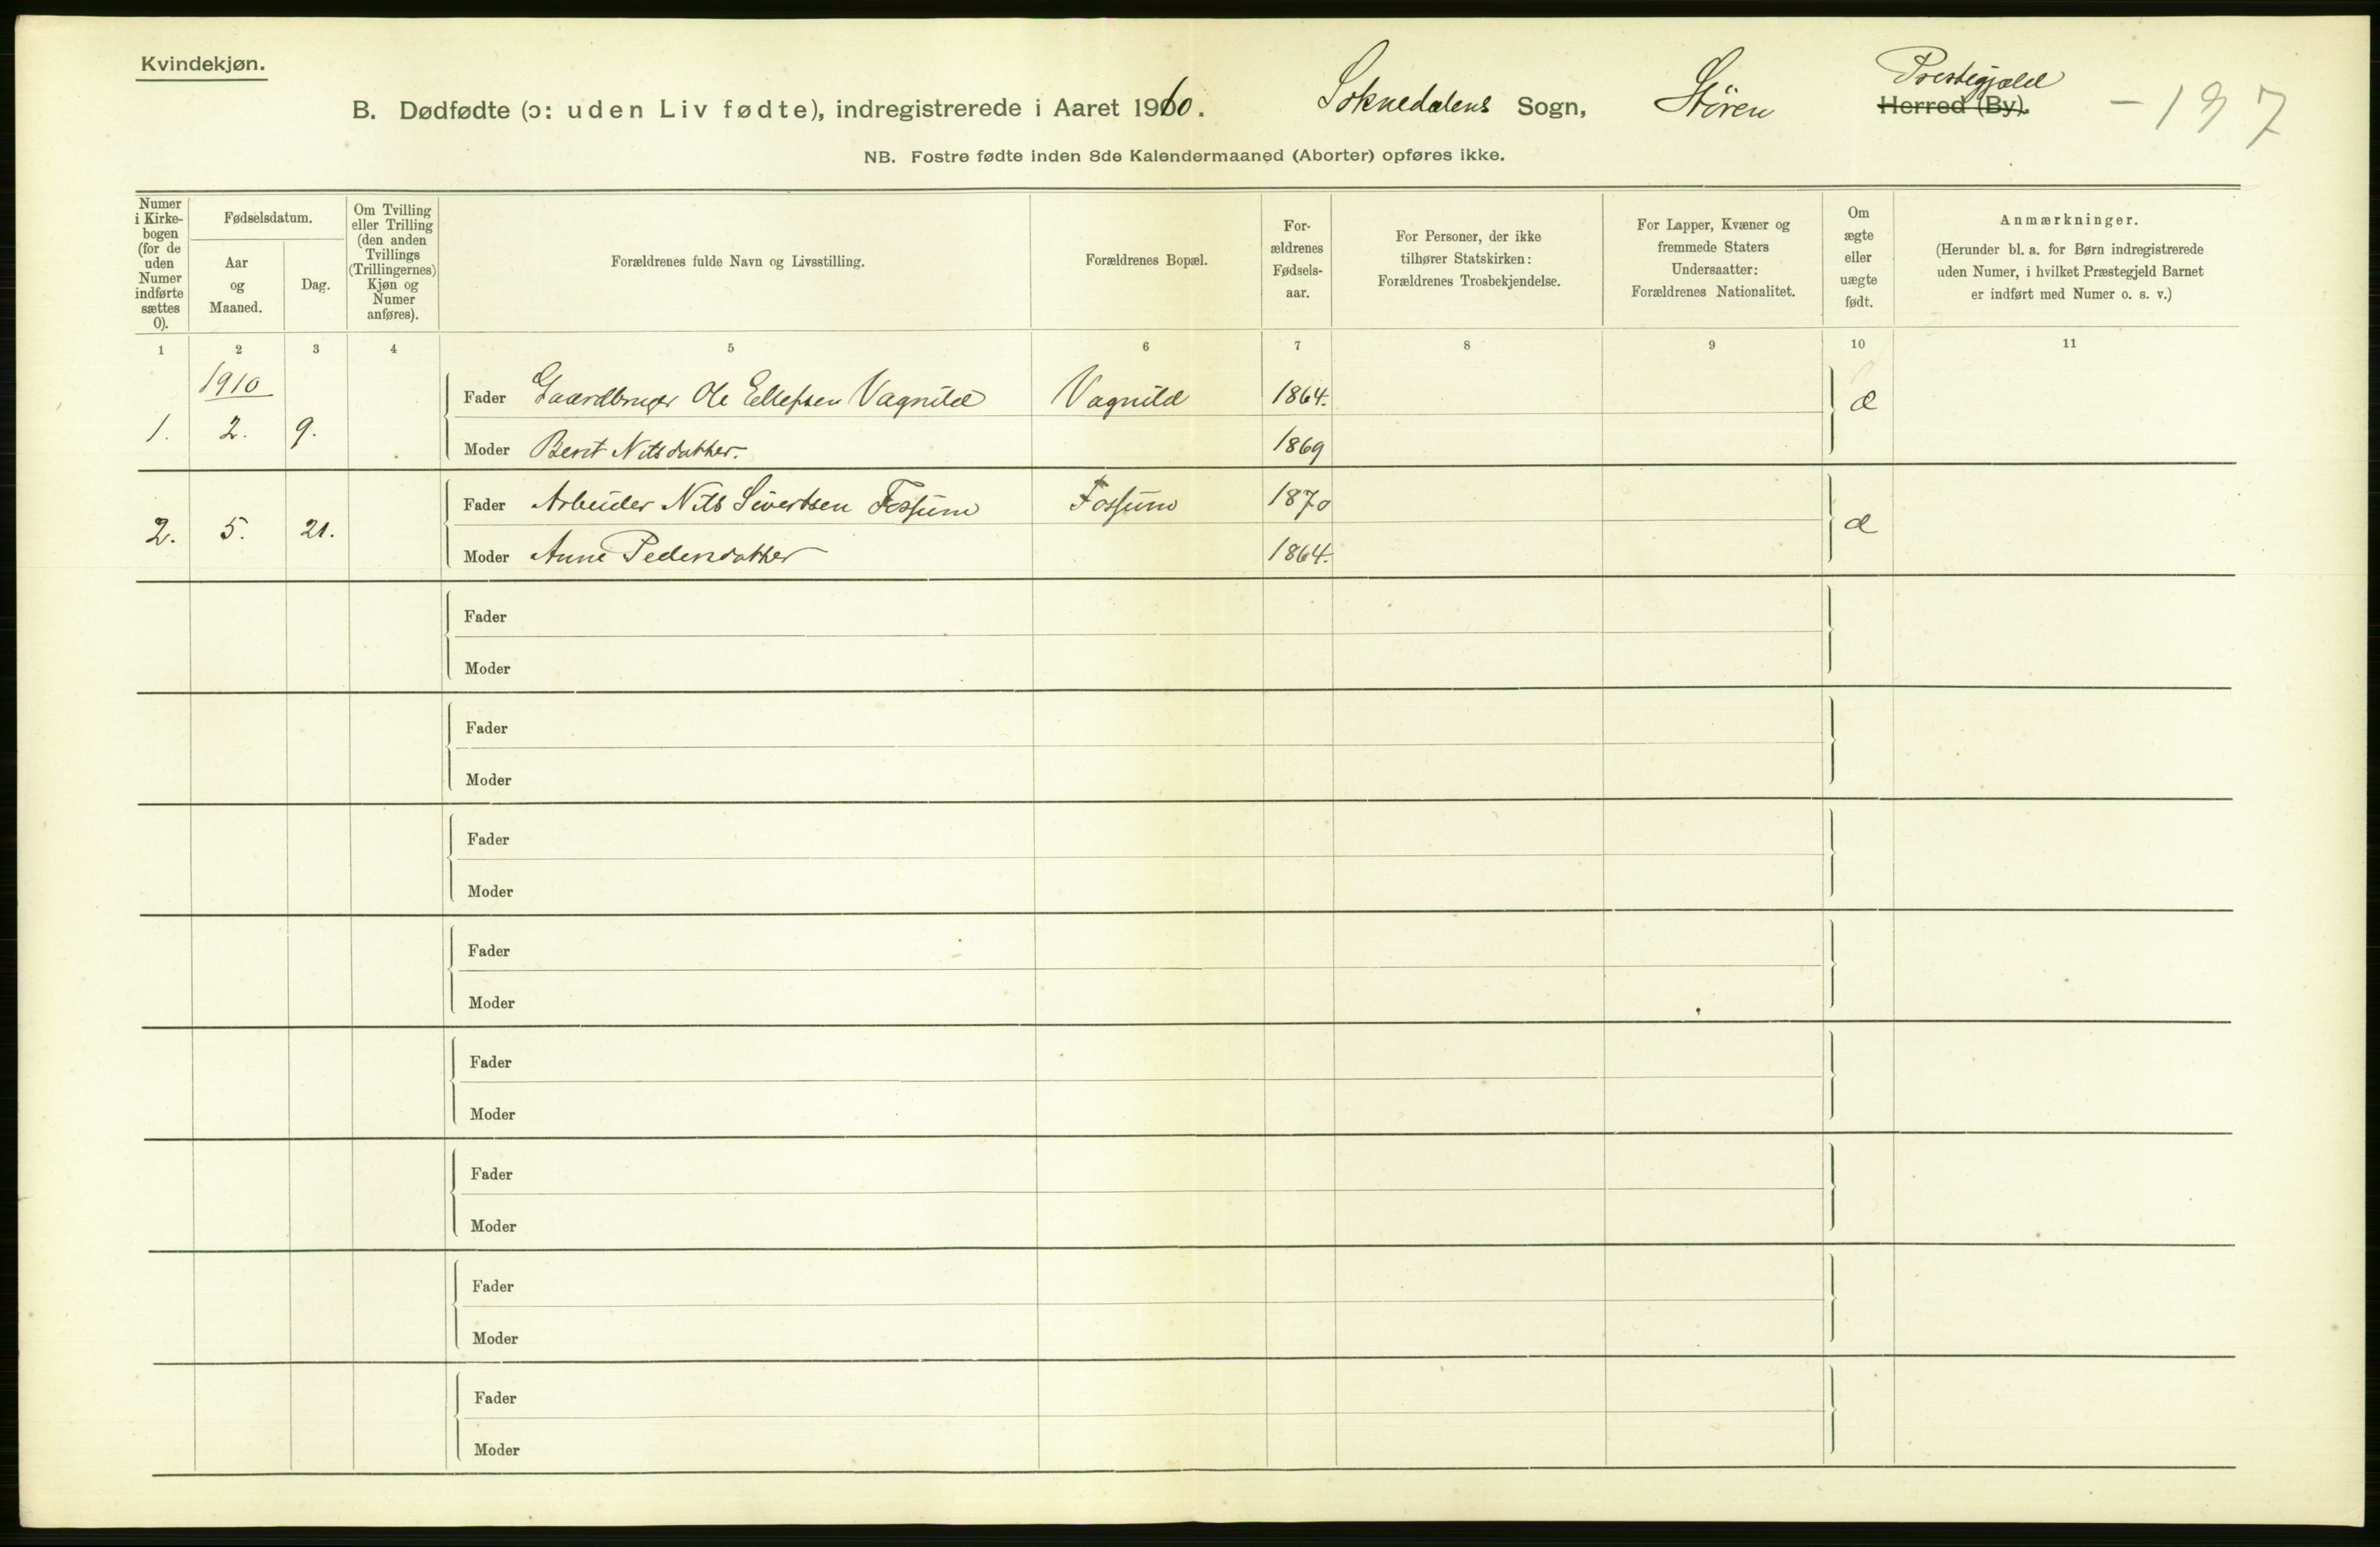 Kvindekjøn.
B. Dødfødte (ɔ: uden Liv fødte), indregistrerede i Aaret 1910. Soknedalens Sogn, Støren Herred (By). Prestegjæld
- 197
NB. Fostre fødte inden 8de Kalendermaaned (Aborter) opføres ikke.
Numer
i Kirke-
bogen
(for de
uden
Numer
indførte
sættes
0).
Fødselsdatum.
Aar
og
Maaned.
Dag.
Om Tvilling
eller Trilling
(den anden
Tvillings
(Trillingernes)
Kjøn og
Numer
anføres).
Forældrenes fulde Navn og Livsstilling.
Forældrenes Bopæl.
For-
ældrenes
Fødsels-
aar.
For Personer, der ikke
tilhører Statskirken:
Forældrenes Trosbekjendelse.
For Lapper, Kvæner og
fremmede Staters
Undersaatter:
Forældrenes Nationalitet.
Om
ægte
eller
uægte
født.
Anmærkninger.
(Herunder bl. a. for Børn indregistrerede
uden Numer, i hvilket Præstegjeld Barnet
er indført med Numer o. s. v.)
1 2 3 4 5 6 7 8 9 10 11
1910
Fader Gaardbruger Ole Ellefsen Vagnild Vagnild 1864. æ
1. 2. 9.
Moder Berit Nilsdatter. 1869
Fader Arbeider Nils Sivertsen Fossum Fossum 1870
2. 5. 21. æ
Moder Anne Pedersdatter 1864.
Fader
Moder
Fader
Moder
Fader
Moder
Fader
Moder
Fader
Moder
Fader
Moder
Fader
Moder
Fader
Moder